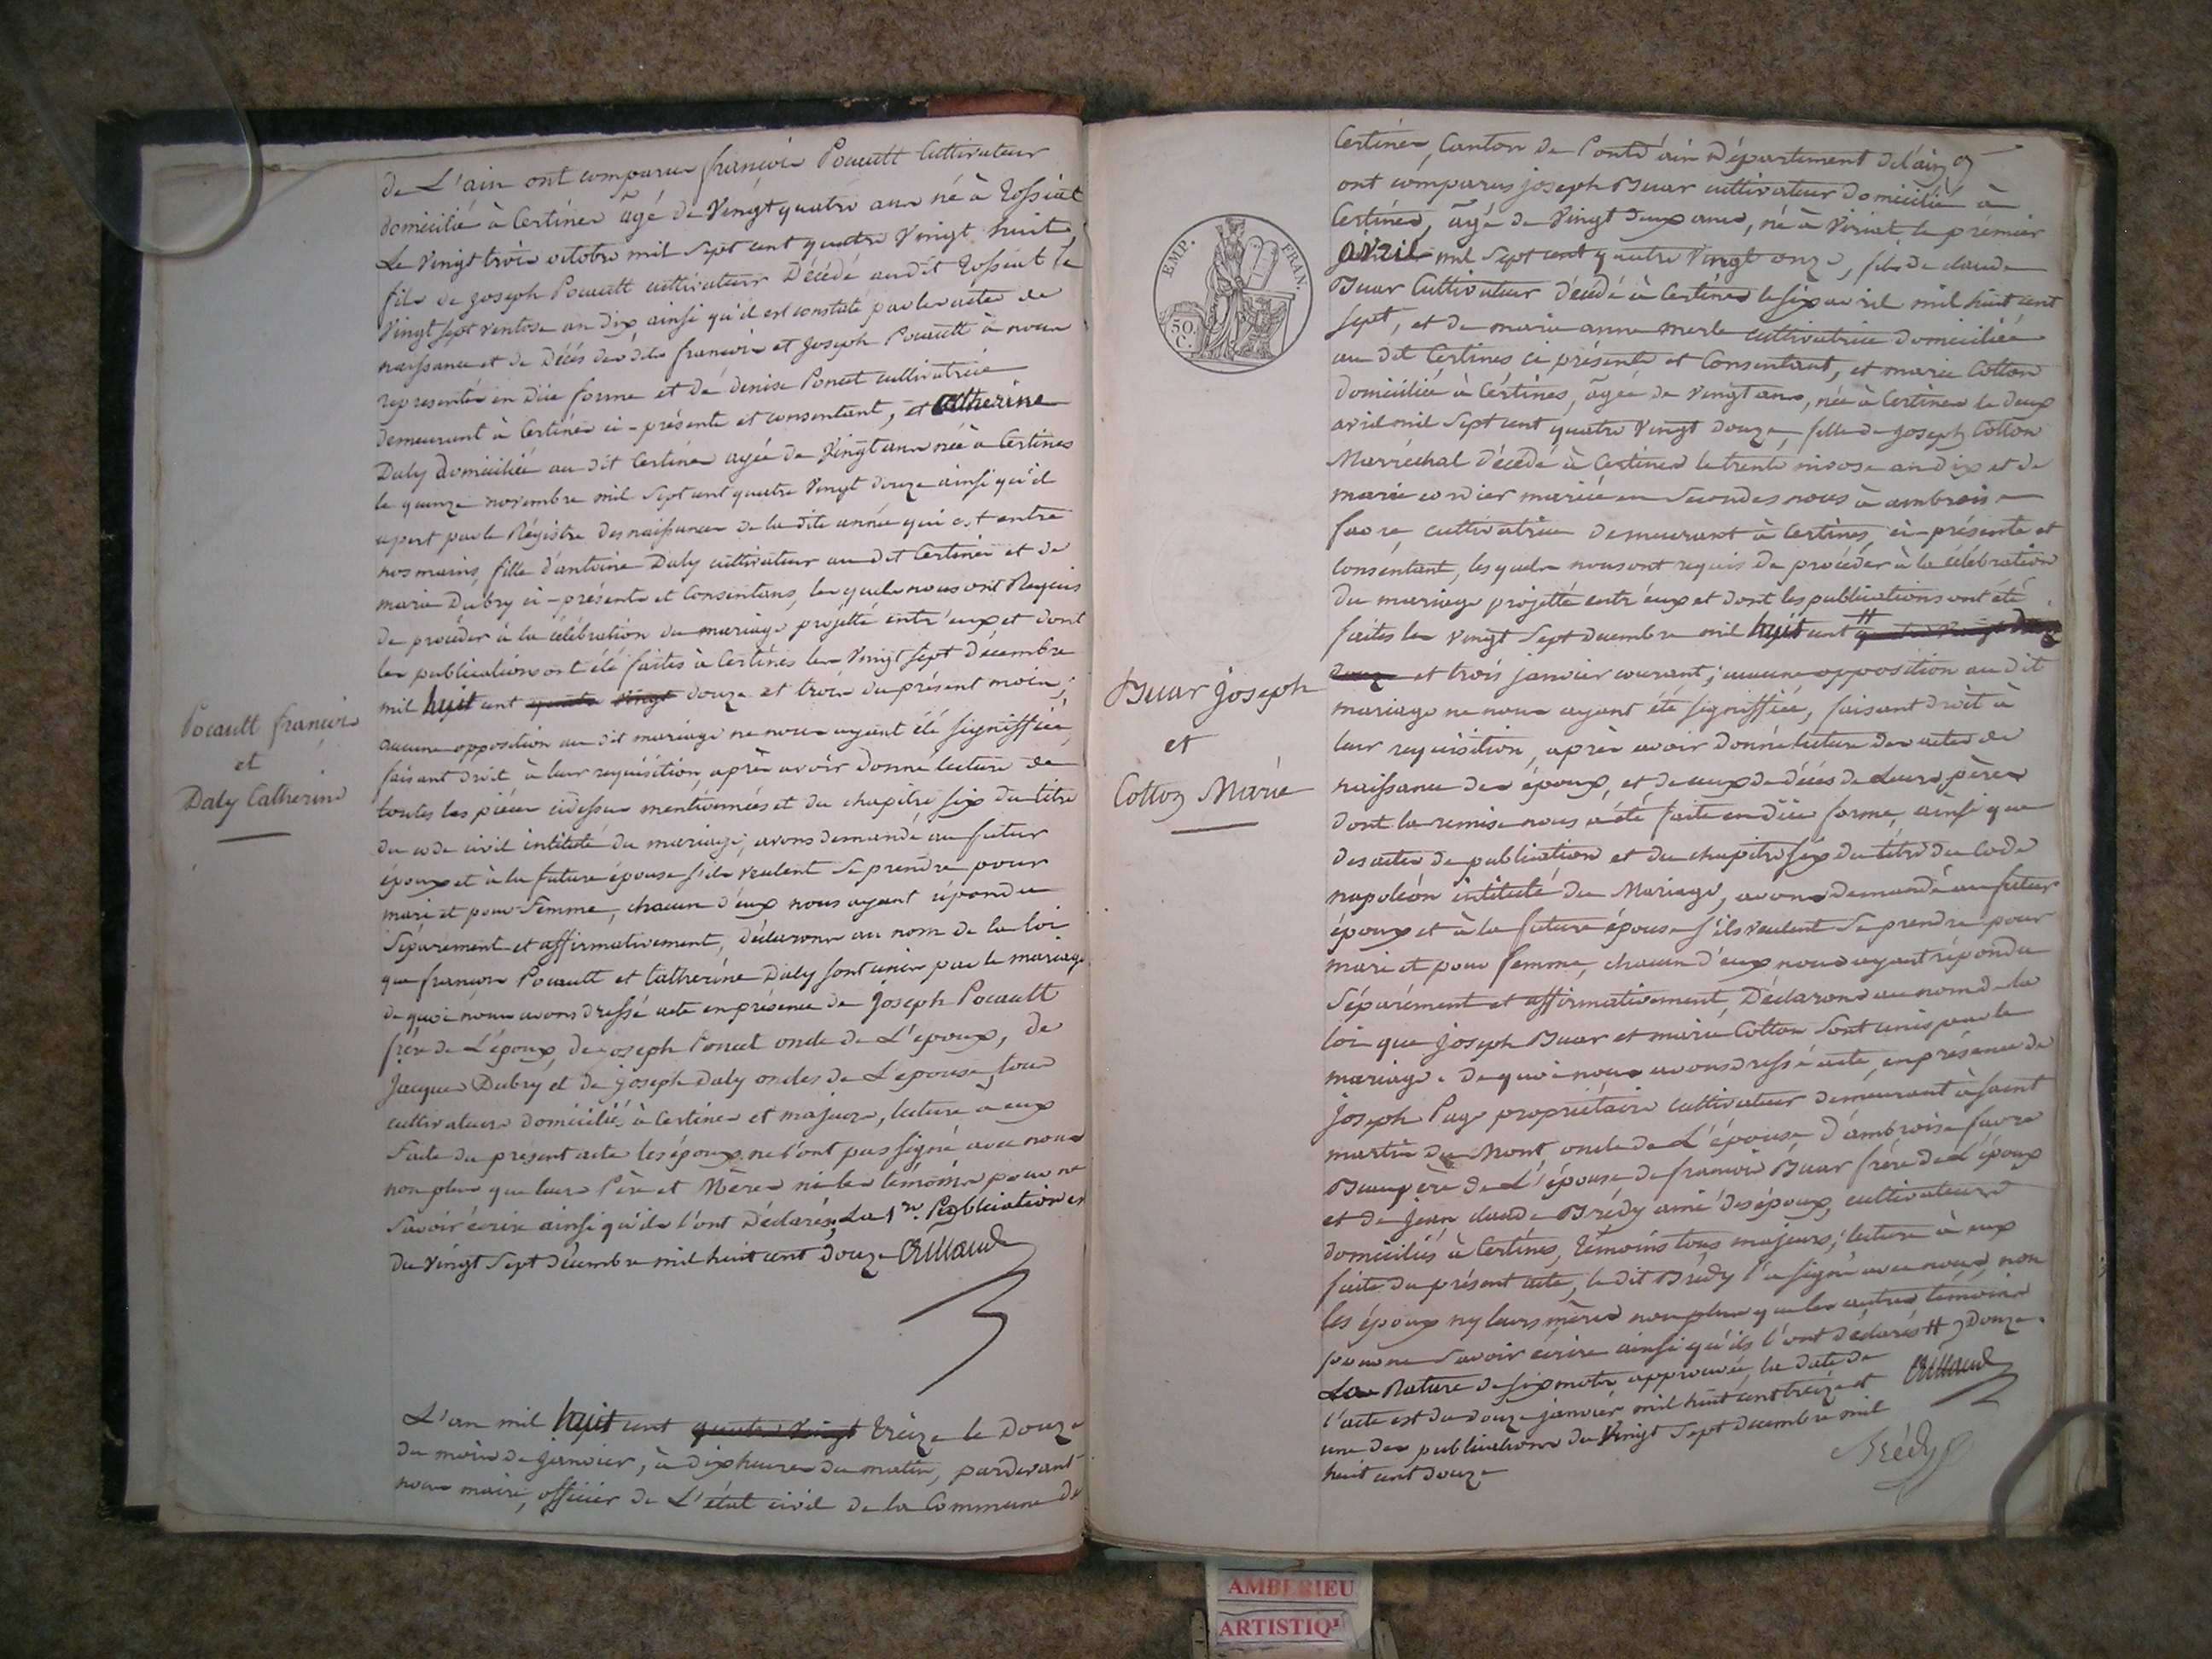 de L'ain ont comparu françois Pocault Cultivateur
domicilié à Certines âgé de Vingt quatre ans né à Tossiat
Le Vingt trois octobre mil Sept cent quatre Vingt huit,
fils de joseph Pocault cultivateur Décédé au dit Tossiat le
Vingt Sept ventose an dix ainsi qu'il est constaté par les actes de
naissance et de Décés des dits françois et Joseph Pocault à nous
representés en Düe forme et de denise Poncet cultivatrice
demeurant à Certines ci-présente et consentant, et Catherine
Daly domiciliée au dit Certines agée de Vingt ans née à Certines
le quinze novembre mil Sept cent quatre Vingt douze ainsi qu'il
apert par le Régistre des naissances de la dite année qui est entre
nos mains, fille d'antoine Daly cultivateur au dit Certines et de
marie Dubry ci-présents et Consentans, les quels nous ont Requis
de procéder à la célébration du mariage projetté entr'eux et dont
les publications ont été faites à Certines les Vingt Sept décembre
mil huit cent quatre Vingt douze et trois du présent mois;
aucune opposition au dit mariage ne nous ayant été signiffiée,
faisant droit à leur requisition, après avoir donné lecture de
toutes les pièces cidessus mentionnées et du chapitre six du titre
du code civil intitulé du mariage, avons demandé au futur
époux et à la future épouse s'ils veulent Se prendre pour
mari et pour Femme, chacun d'eux nous ayant répondu
Séparement et affirmativement, déclarons au nom de la loi
que françois Pocault et Catherine Daly sont unis par le mariage
de quoi nous avons dressé acte en présence de Joseph Pocault
frère de L'époux, de joseph Poncet oncle de L'époux, de
Jacques Dubry et de joseph Daly oncles de L'épouse, tous
cultivateurs domiciliés à Certines et majeurs, lecture a eux
Faite du présent acte les époux ne l'ont pas signé avec nous
non plus que leurs Père et Mères ni les témoins pour ne
Savoir écrire ainsi qu'ils l'ont Déclarés, La 1re Publication est
du Vingt Sept décembre mil huit cent douze
Pocault françois
et
Daly Catherine
L'an mil huit cent quatre Vingt treize le Douze
du mois de janvier, à dix heures du matin, pardevant
nous maire, officier de L'état civil de la Commune de
EMP. FRAN.
50.
C.
Certines, Canton de Pont d'ain Département de l'ain
ont comparus joseph Buar cultivateur domicilié à
Certines, âgé de Vingt deux ans, né à Viriat le prémier
avril mil Sept cent quatre Vingt onze, fils de claude
Buar Cultivateur décédé à Certines le six avril mil huit cent
sept, et de marie anne merle cultivatrice domiciliée
au dit Certines, ci présente et Consentant, et marie Cotton
domiciliée à Certines, âgée de vingt ans, née à Certines le deux
avril mil Sept cent quatre Vingt douze, fille de joseph Cotton
Maréchal décédé à Certines le trente nivose an dix et de
marie cordier mariée en Secondes noces à ambroise
favre cultivatrice demeurant à Certines, ci-présente et
consentant, les quels nous ont requis de procéder à la célébration
du mariage projetté entr'eux et dont les publications ont été
faites les vingt Sept decembre mil huit cent # quatre Vingt
et trois janvier courant; aucune opposition au dit
mariage ne nous ayant été signiffiée, faisant droit à
leur requisition, après avoir donné lecture des actes de
naissance des époux, et de ceux de décès de Leurs pères
dont la remise nous a été faite en düe forme, ainsi que
des actes de publication et du chapitre six du titre du Code
napoléon intitulé du Mariage, avons demandé au futur
époux et à la future épouse s'ils veulent Se prendre pour
mari et pour femme, chacun d'eux nous ayant répondu
Séparément et affirmativement, Déclarons au nom de la
loi que joseph Buar et marie Cotton Sont unis par le
mariage. de quoi nous avons dressé acte, en présence de
joseph Page propriétaire cultivateur demeurant à saint
martin du Mont, oncle de L'épouse, d'ambroise favre
Beaupère de L'épouse de françois Buar frère de L'époux
et de jean claude Brédy ami des époux, cultivateurs
domiciliés à Certines, témoins tous majeurs; lecture à eux
faite du présent acte, le dit Brédy l'a signé avec nous, non
les époux ny leurs mères non plus que les autres témoins
pour ne Savoir écrire ainsi qu'ils l'ont déclarés # Douze.
La Rature de six mots approuvée, la date de
l'acte est du douze janvier mil huit cent treize et
une des publications du Vingt Sept decembre mil
huit cent douze
Brédy
Buar joseph
et
Cotton Marie
AMBERIEU
ARTISTIQ